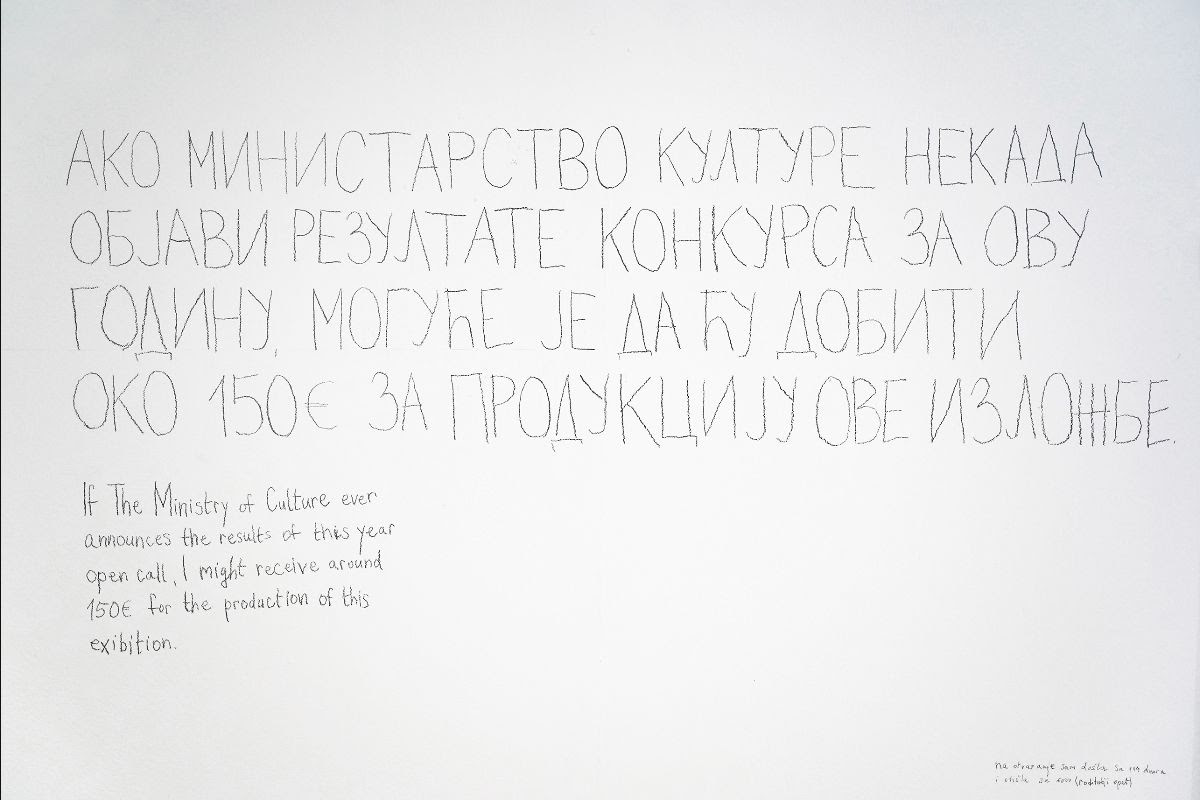 АКО МИНИСТАРСТВО КУЛТУРЕ НЕКАДА
ОБЈАВИ РЕЗУЛТАТЕ КОНКУРСА ЗА ОВУ
ГОДИНУ, МОГУЋЕ ЈЕ ДА ЋУ ДОБИТИ
ОКО 150€ ЗА ПРОДУКЦИЈУ ОВЕ ИЗЛОЖБЕ.
If The Ministry of Culture ever
announces the results of this year
open call, I might receive around
150€ for the production of this
exibition.
na otvaranje sam došla sa
i otišla sa (roditelji opet)